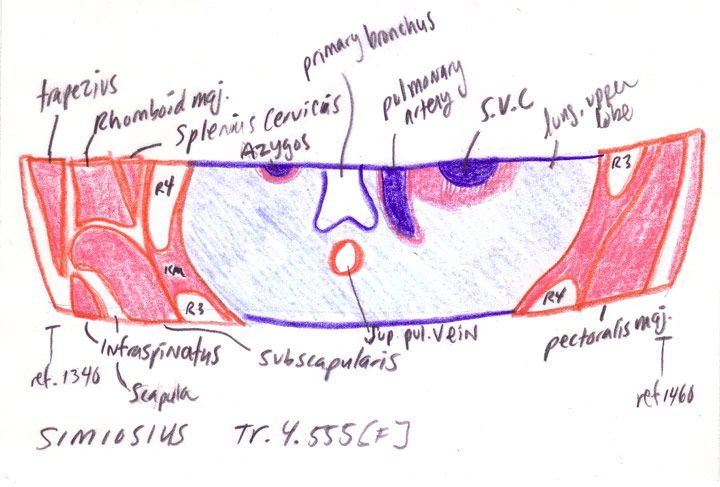 primary bronchus
trapezius
Rhomboid maj.
Splenius Cervicis
Azygos
pulmonary
artery
S.V.C
lung, upper
lobe
R4
R3
RM
R3
R4
Infraspinatus
Scapula
Subscapularis
Sup. pul. Vein
pectoralis maj.
ref. 1340
ref 1460
SIMIOSIUS Tr. 4. 555 [F]